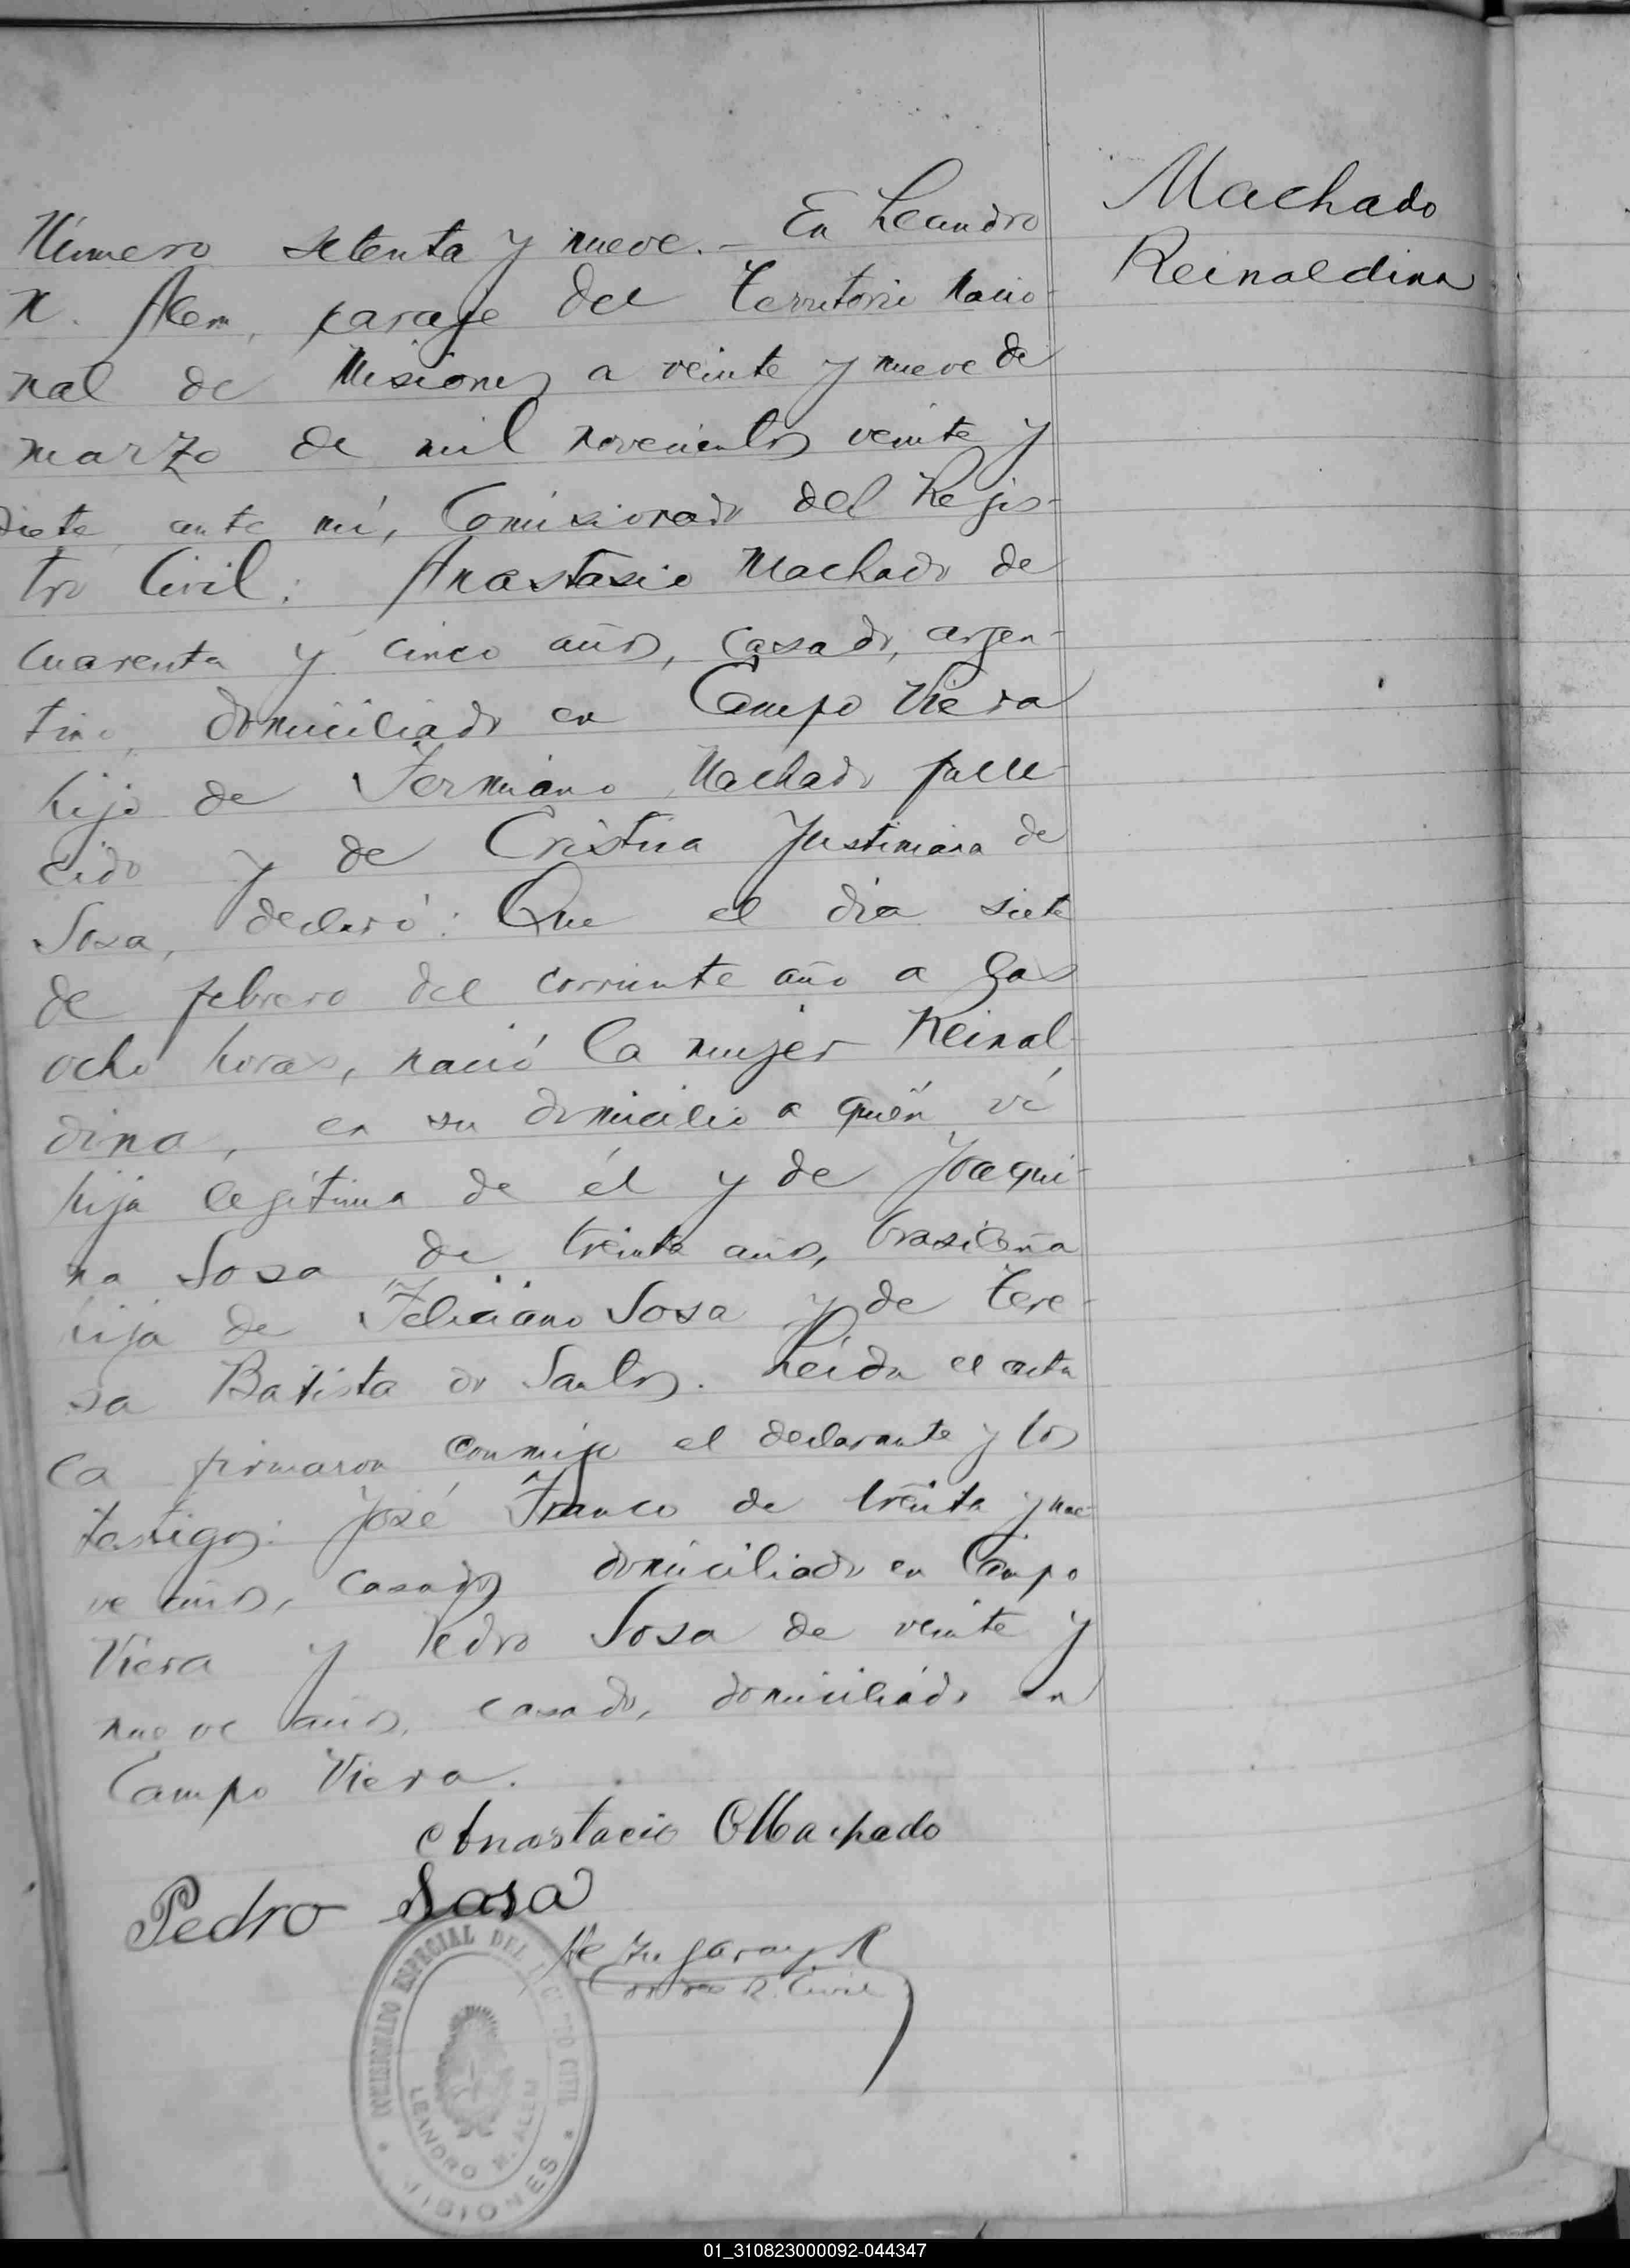 Machado
Reinaldina
Número setenta y nueve. – En Leandro
N. Alem, paraje del Territorio Nacio-
nal de Misiones a veinte y nueve de
marzo de mil novecientos veinte y
siete, ante mí, Comisionado del Regis-
tro Civil: Anastasio Machado de
cuarenta y cinco años, casado, argen-
tino, domiciliado en Campo Viera
hijo de Fermiano Machado falle-
cido y de Cristina Justiniana de
Sosa, declaró: Que el día siete
de febrero del corriente año a las
ocho horas, nació la mujer Reinal-
dina, en su domicilio a quién ví
hija legítima de él y de Joaqui-
na Sosa de treinta años, brasileña
hija de Feliciano Sosa y de Tere-
sa Batista do Santos. Leída el acta
la firmaron conmigo el declarante y los
testigos: José Franco de treinta y nue-
ve años, casado, domiciliado en Campo
Viera y Pedro Sosa de veinte y
nueve años, casado, domiciliado en
Campo Viera.
Anastacio Machado
Pedro Sosa
R. Civil
COMISIONADO ESPECIAL DEL REGISTRO CIVIL
LEANDRO N. ALEM
MISIONES
01_310823000092-044347